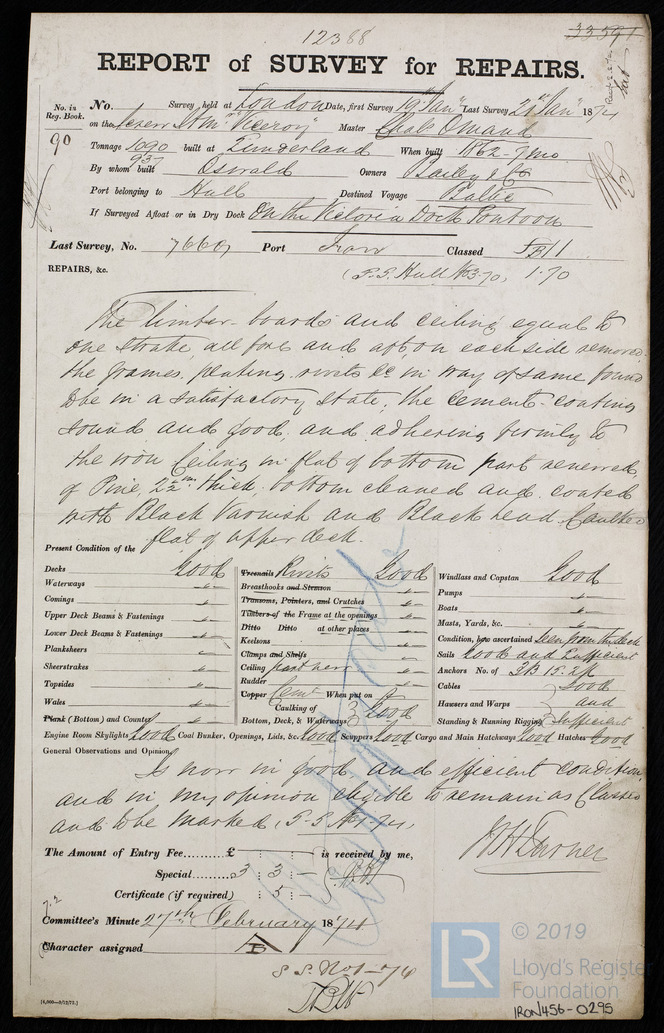 12388
33591
REPORT of SURVEY for REPAIRS.
No. in Reg. Book.
90
No. Survey held at London Date, first Survey 19th Jany Last Survey 21st Jany 1874
on the Screw Stmr "Viceroy" Master Chas Omand
Tonnage 1090 built at Sunderland When built 1862-7mo
937
By whom built Oswald Owners Bailey & Co
Port belonging to Hull Destined Voyage Baltic
If Surveyed Afloat or in Dry Dock On the Victoria Dock Pontoon
Last Survey, No. 7660 Port Iron Classed
REPAIRS, &c. (S.S. Hull No 3-70) 1.70
The limber-boards and ceiling equal to
one strake, all fore and aft on each side removed
the frames, plating, rivets &c in way of same found
to be in a satisfactory state; the cement-coating
sound and good, and adhering firmly to
the iron. Ceiling in flat of bottom part renewed
of Pine, 2½ in thick; bottom cleaned and coated
with Black Varnish and Black lead. Caulked
flat of upper deck.
Present Condition of the
Decks Good
Waterways "
Comings "
Upper Deck Beams & Fastenings "
Lower Deck Beams & Fastenings "
Planksheers "
Sheerstrakes "
Topsides "
Wales "
Plank (Bottom) and Counter "
Treenails Rivets Good
Breasthooks and Stemson "
Transoms, Pointers, and Crutches "
Timbers of the Frame at the openings "
Ditto Ditto at other places "
Keelsons "
Clamps and Shelfs "
Ceiling part new "
Rudder "
Copper Cemt When put on
Caulking of
Bottom, Deck, & Waterways } Good
Windlass and Capstan Good
Pumps "
Boats "
Masts, Yards, &c. "
Condition, how ascertained Seen from the deck
Sails Good and Sufficient
Anchors No. of 3B 1S. 2K
Cables Good
Hawsers and Warps and
Standing & Running Rigging Sufficient
Engine Room Skylights Good Coal Bunker, Openings, Lids, &c. Good Scuppers Good Cargo and Main Hatchways Good Hatches Good
General Observations and Opinion
Is now in good and efficient condition,
and in my opinion eligible to remain as Classed
and to be marked (S.S. No 1-74)
The Amount of Entry Fee.........£ : : is received by me,
Special.......3 : 3 : —
Certificate (if required) : 5 : —
J H Turner
Committee's Minute 27th February 1874
Character assigned A
S.S. No 1-74
[4,000—9/12/72.]
© 2019
LR
Lloyd's Register
Foundation
IRON456-0295